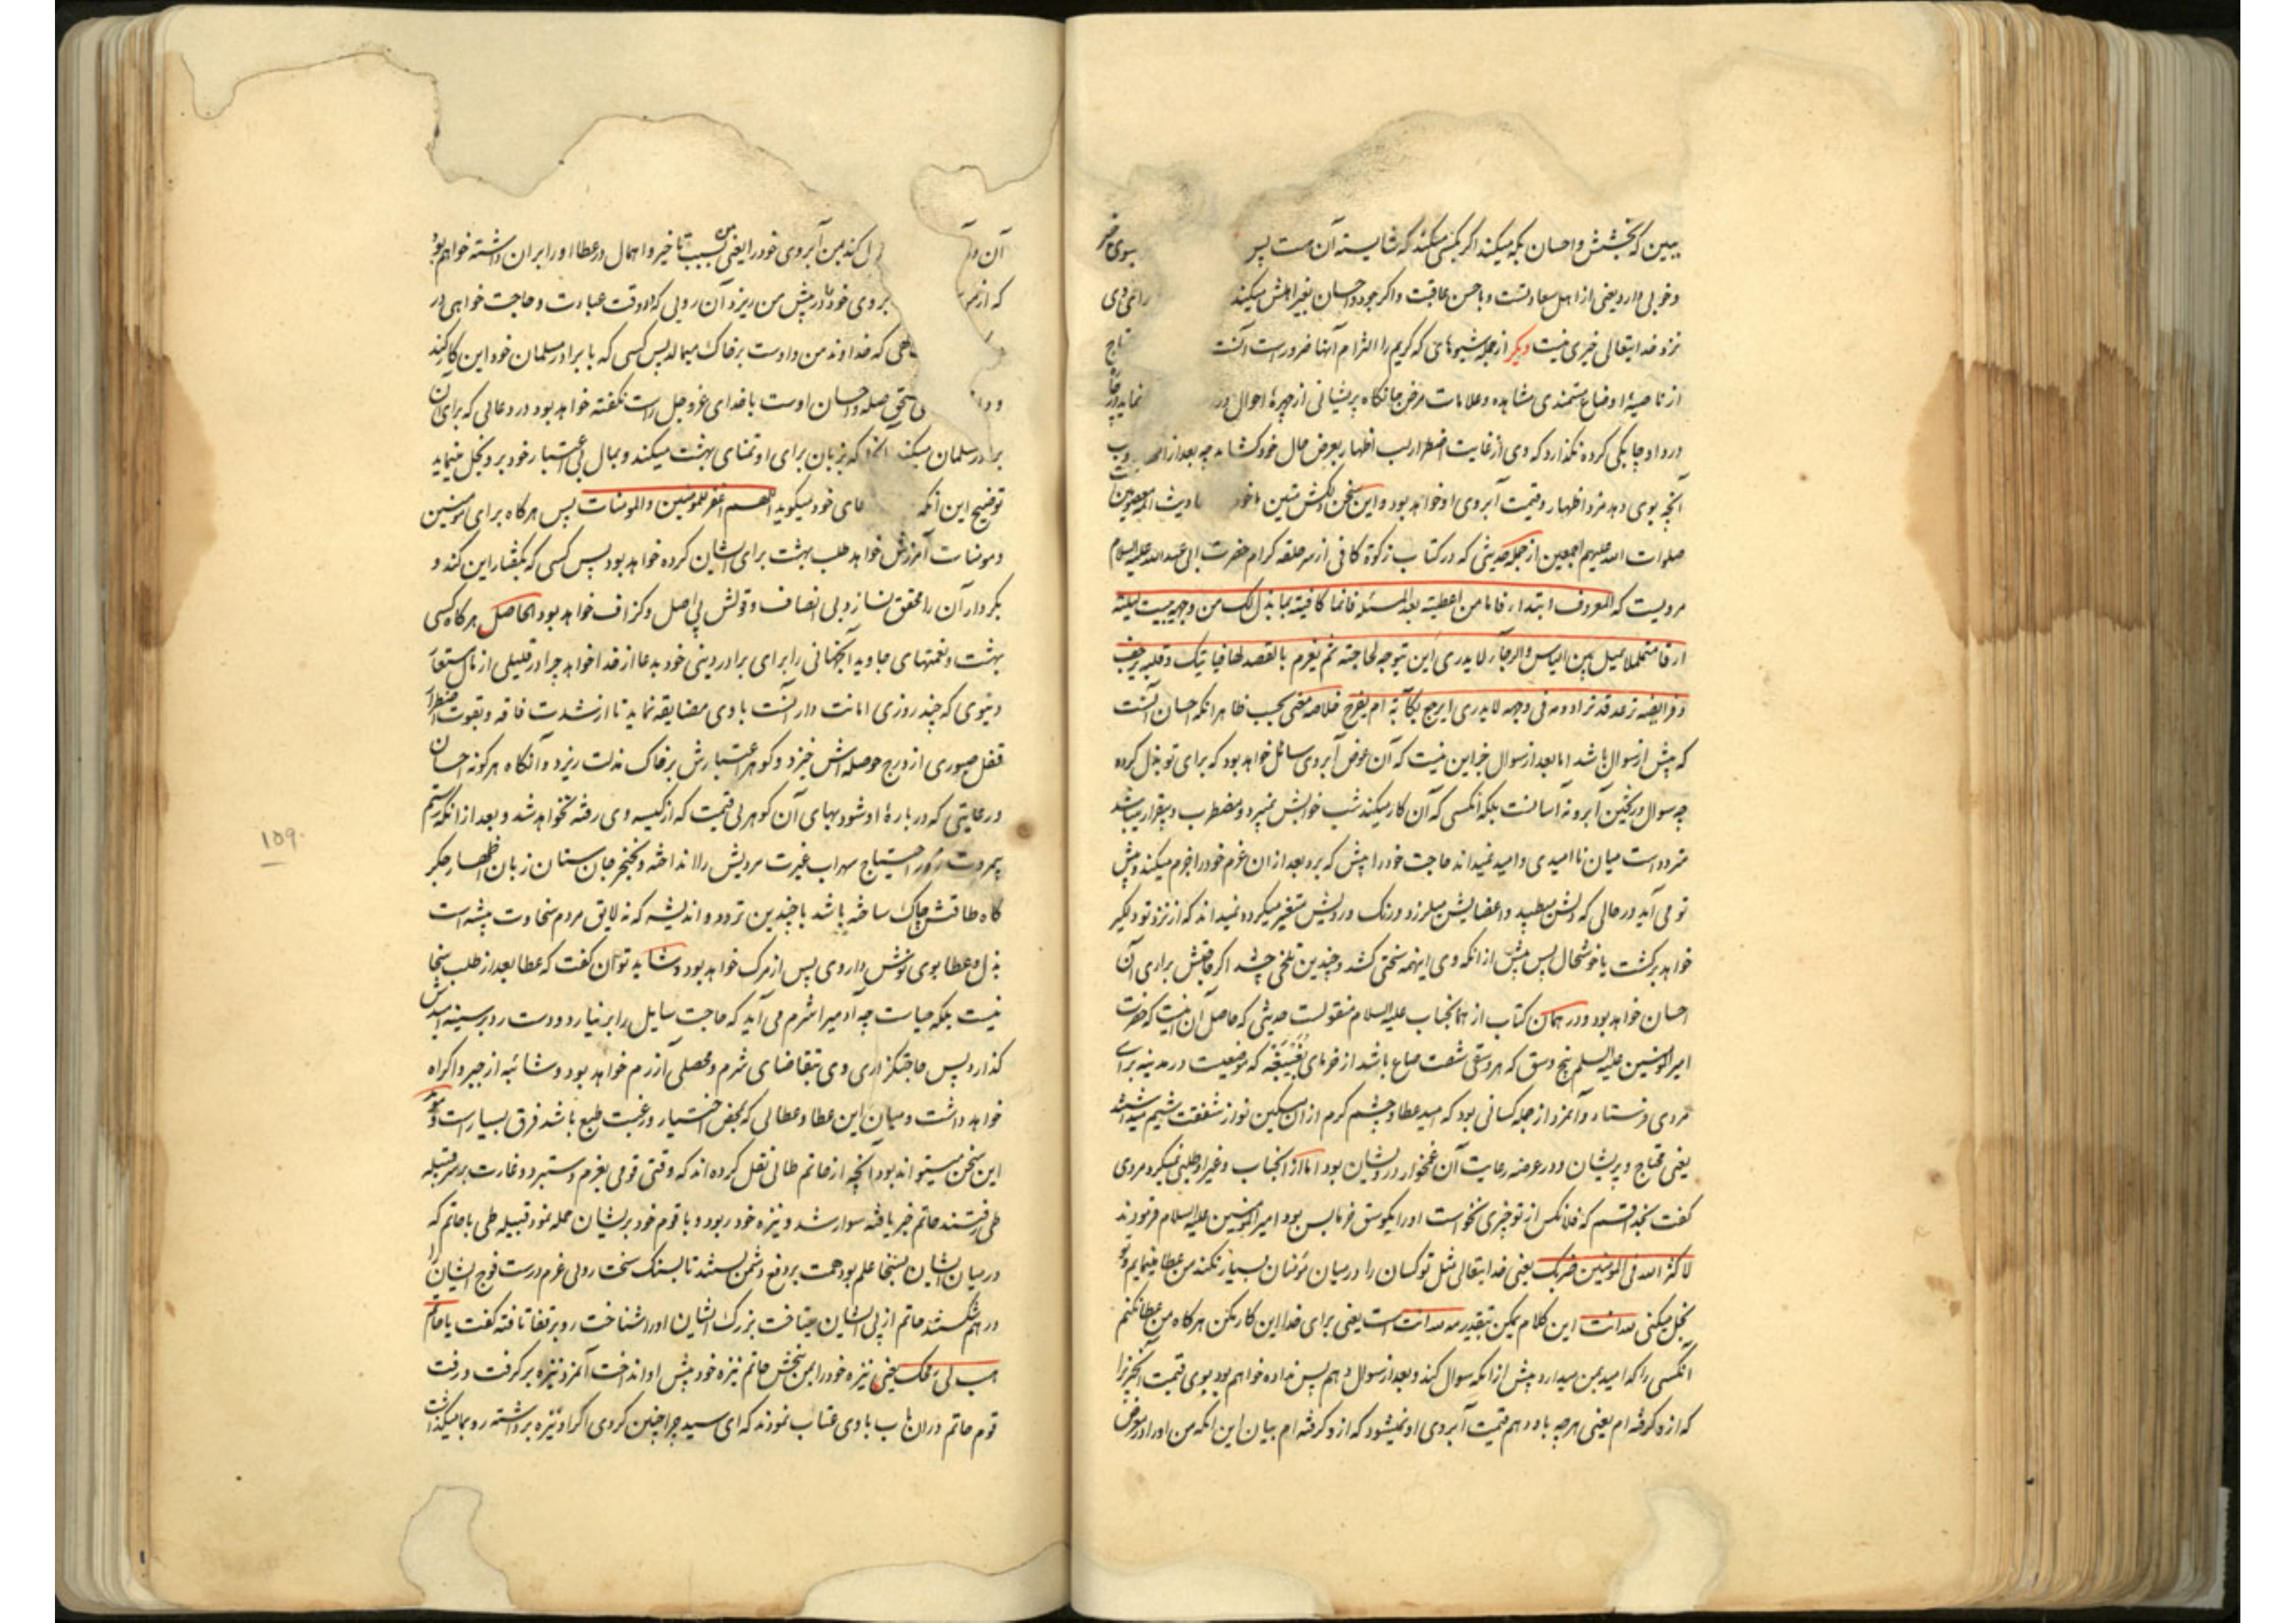 ببین که بخشش و احسان بکه میکند اگر بکسی میکند که شایسته آن هست پس بسوی خیر
و خوبی دارد یعنی از اهل سعادتست و با حسن عاقبت و اگر جود و احسان بغیر اهلش میکند رای وی
نزد خدایتعالی خیری نیست دیگر از جمله شیوهای که کریم را التزام آنها ضرور است آنست
از ناصیه اوضاع مستمندی مشاهده و علامات مرض جانکاه پریشانی از چهره احوال نماید در
درد او چابکی کرده نگذارد که وی از غایت اضطرار لب اظهار بعرض حال خود کشاید چه بعد از
آنچه بوی دهد مزد اظهار و قیمت آبروی او خواهد بود و این سخن دلکش متین ائمه معصومین
صلوات الله علیهم اجمعین از جمله حدیثی که در کتاب زکوة کافی از سر حلقه کرام حضرت ابی عبد الله علیه السلام
مرویست که المعروف ابتداء فاما من اعطیته بعد المسئلة فانما کافیته بما بذل لک من وجهه یبیت لیلته
ارقا متململا یمیل بین الیاس و الرجاء لا یدری این یتوجه لحاجته ثم یعزم بالقصد لها فیاتیک و قلبه یرجف
و فرایصه ترعد قد تری دمه فی وجهه لا یدری ایرجع بکآبة ام بفرح خلاصه معنی بحسب ظاهر آنکه احسان آنست
که پیش از سوال باشد اما بعد از سوال جز این نیست که آن عوض آبروی سائل خواهد بود که برای تو بذل کرده
چه سوال و ریختن آبرو نه آسانست بلکه آنکسی که آن کار میکند شب خوابش نمیبرد و مضطرب و بیقرار میباشد
متردد است میان ناامیدی و امید نمیداند حاجت خود را پیش که برد بعد از ان عزم خود را جزم میکند و پیش
تو می آید در حالی که دلش میطپد و اعضایش میلرزد و رنگ و رویش متغیر میگردد نمیداند که از نزد تو دلگیر
خواهد برگشت یا خوشحال پس پیش از انکه وی اینهمه سختی کشد و چندین تلخی چشد اگر حاجتش براری آن
احسان خواهد بود و در همان کتاب از همانجناب علیه السلام منقولست حدیثی که حاصل آن اینست که حضرت
امیر المومنین علیه السلم پنج وسق که هر وسقی شصت صاع باشد از خرمای بغیبغه که موضعیست در مدینه برای
مردی فرستاد و آنمرد از جمله کسانی بود که امید عطا و چشم کرم از ان مسکین نواز شفقت شیم میداشتند
یعنی محتاج و پریشان و در عرضه رعایت آن غمخوار درویشان بود اما از آنجناب و غیر او طلبی نمیکرد مردی
گفت بخدا قسم که فلانکس از تو چیزی نخواست او را یکوسق خرما بس بود امیر المومنین علیه السلام فرمودند
لا کثر الله فی المومنین ضربک یعنی خدایتعالی مثل تو کسان را در میان مؤمنان بسیار نکند من عطا مینمایم و تو
بخل میکنی لله انت این کلام یمکن بتقدیر لله انت است یعنی برای خدا این کار مکن هرگاه من عطا نکنم
آنکسی را که امید بمن میدارد پیش از آنکه سوال کند و بعد از سوال دهم پس نداده خواهم بود بوی قیمت آنچیز را
که ازو گرفته ام یعنی هرچه باو دهم قیمت آبروی او نمیشود که ازو گرفته ام بیان این انکه من او را در معرض
آن کند من آبروی خود را یعنی من بسبب تاخیر و اهمال در عطا او را بران داشته خواهم بود
که از بروی خود را در پیش من ریزد آن رویی که در وقت عبادت و حاجت خواهی در
که خداوند من و اوست بر خاک میمالد پس کسی که با برادر مسلمان خود این کار کند
و مستحق صله و احسان اوست با خدای عزوجل راست نگفته خواهد بود در دعائی که برای آن
برادر مسلمان میکند که بزبان برای او تمنای بهشت میکند و بمال بی اعتبار خود برو بخل مینماید
توضیح این انکه خود میگوید اللهم اغفر للمومنین و المومنات پس هرگاه برای مومنین
و مومنات آمرزش خواهد طلب بهشت برای ایشان کرده خواهد بود پس کسی که بگفتار این کند و
بکردار آن را محقق نسازد بی انصاف و قولش بی اصل و گزاف خواهد بود الحاصل هرگاه کسی
بهشت و نعمتهای جاوید آنجهانی را برای برادر دینی خود بدعا از خدا خواهد چرا در قلیلی از مال مستعار
دنیوی که چند روزی امانت دار آنست با وی مضایقه نماید تا از شدت فاقه و بقوت اضطرار
قفل صبوری از درج حوصله اش خیزد و گوهر اعتبارش بر خاک مذلت ریزد و آنگاه هرگونه احسان
و رعایتی که در باره او شود بهای آن گوهر بی قیمت که از کیسه وی رفته نخواهد شد و بعد از انکه رستم
بیمروت زور احتیاج سهراب غیرت مردیش را انداخته و بخنجر جان ستان زبان اظهار جگر
گاه طاقتش چاک ساخته باشد با چندین تردد و اندیشه که نه لایق مردم سخاوت پیشه است
بذل و عطا بوی نوش داروی پس از مرگ خواهد بود و شاید توان گفت که عطا بعد از طلب سخا
نیست بلکه حیاست چه آدمی را شرم می آید که حاجت سایل را بر نیارد و دست رد بر سینه امیدش
گذارد پس حاجتگزاری وی بتقاضای شرم و محصلی آزرم خواهد بود و شائبه از جبر و اکراه
خواهد داشت و میان این عطا و عطائی که بمحض اختیار و رغبت طبع باشد فرق بسیار است و موید
این سخن میتواند بود آنچه از حاتم طائی نقل کرده اند که وقتی قومی بعزم دستبرد و غارت بر سر قبیله
طی رفتند حاتم خبر یافته سوار شد و نیزه خود ربود و با قوم خود بریشان حمله نمود قبیله طی با حاتم که
در میان ایشان بسخا علم بود همت بر دفع دشمن بستند تا بسنگ سخت رویی عزم درست فوج ایشان را
در هم شکستند حاتم از پی ایشان میتاخت بزرگ ایشان او را شناخت رو بر قفا تافته گفت یا حاتم
هب لی رمحک یعنی نیزه خود را بمن ببخش حاتم نیزه خود پیش او انداخت آنمرد نیزه بر گرفت و رفت
قوم حاتم دران باب با وی عتاب نمودند که ای سید چرا چنین کردی اگر او نیزه برداشته رو بما میگذاشت
۱۵۹